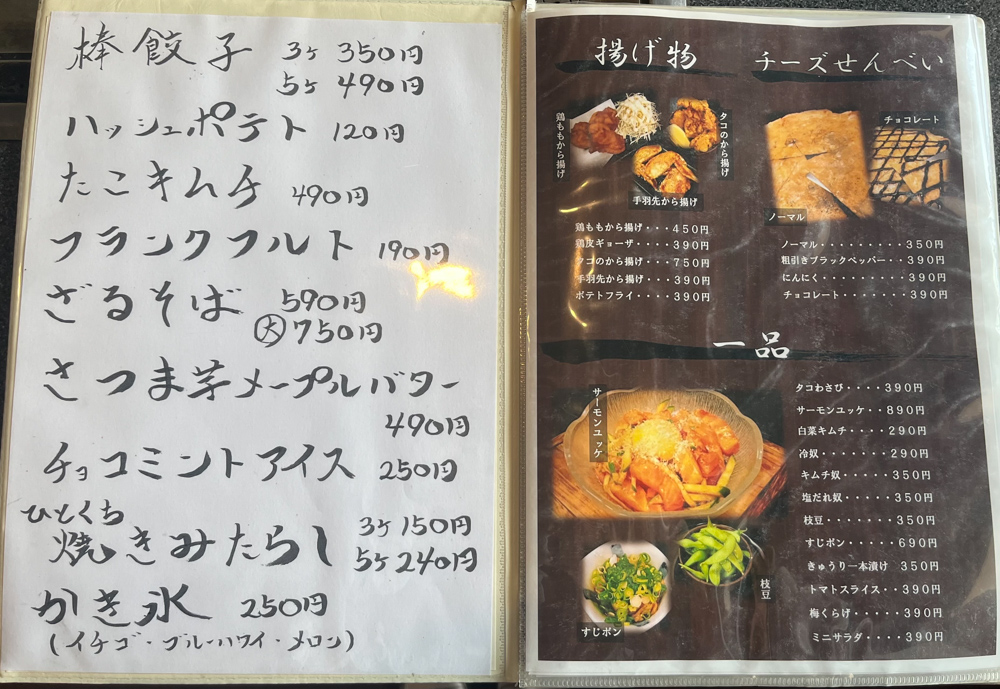 棒餃子 3ヶ 350円
5ヶ 490円
ハッシュポテト 120円
たこキムチ 490円
フランクフルト 190円
ざるそば 590円
大 750円
さつま芋メープルバター
490円
チョコミントアイス 250円
ひとくち
焼きみたらし 3ヶ 150円
5ヶ 240円
かき氷 250円
(イチゴ・ブルーハワイ・メロン)
揚げ物
鶏ももから揚げ
タコのから揚げ
手羽先から揚げ
鶏ももから揚げ・・・450円
鶏皮ギョーザ・・・・390円
タコのから揚げ・・・750円
手羽先から揚げ・・・390円
ポテトフライ・・・・390円
チーズせんべい
チョコレート
ノーマル
ノーマル・・・・・・・・・350円
粗引きブラックペッパー・・390円
にんにく・・・・・・・・・390円
チョコレート・・・・・・・390円
一品
サーモンユッケ
枝豆
すじポン
タコわさび・・・・390円
サーモンユッケ・・890円
白菜キムチ・・・・290円
冷奴・・・・・・・290円
キムチ奴・・・・・350円
塩だれ奴・・・・・350円
枝豆・・・・・・・350円
すじポン・・・・・690円
きゅうり一本漬け 350円
トマトスライス・・390円
梅くらげ・・・・・390円
ミニサラダ・・・・390円